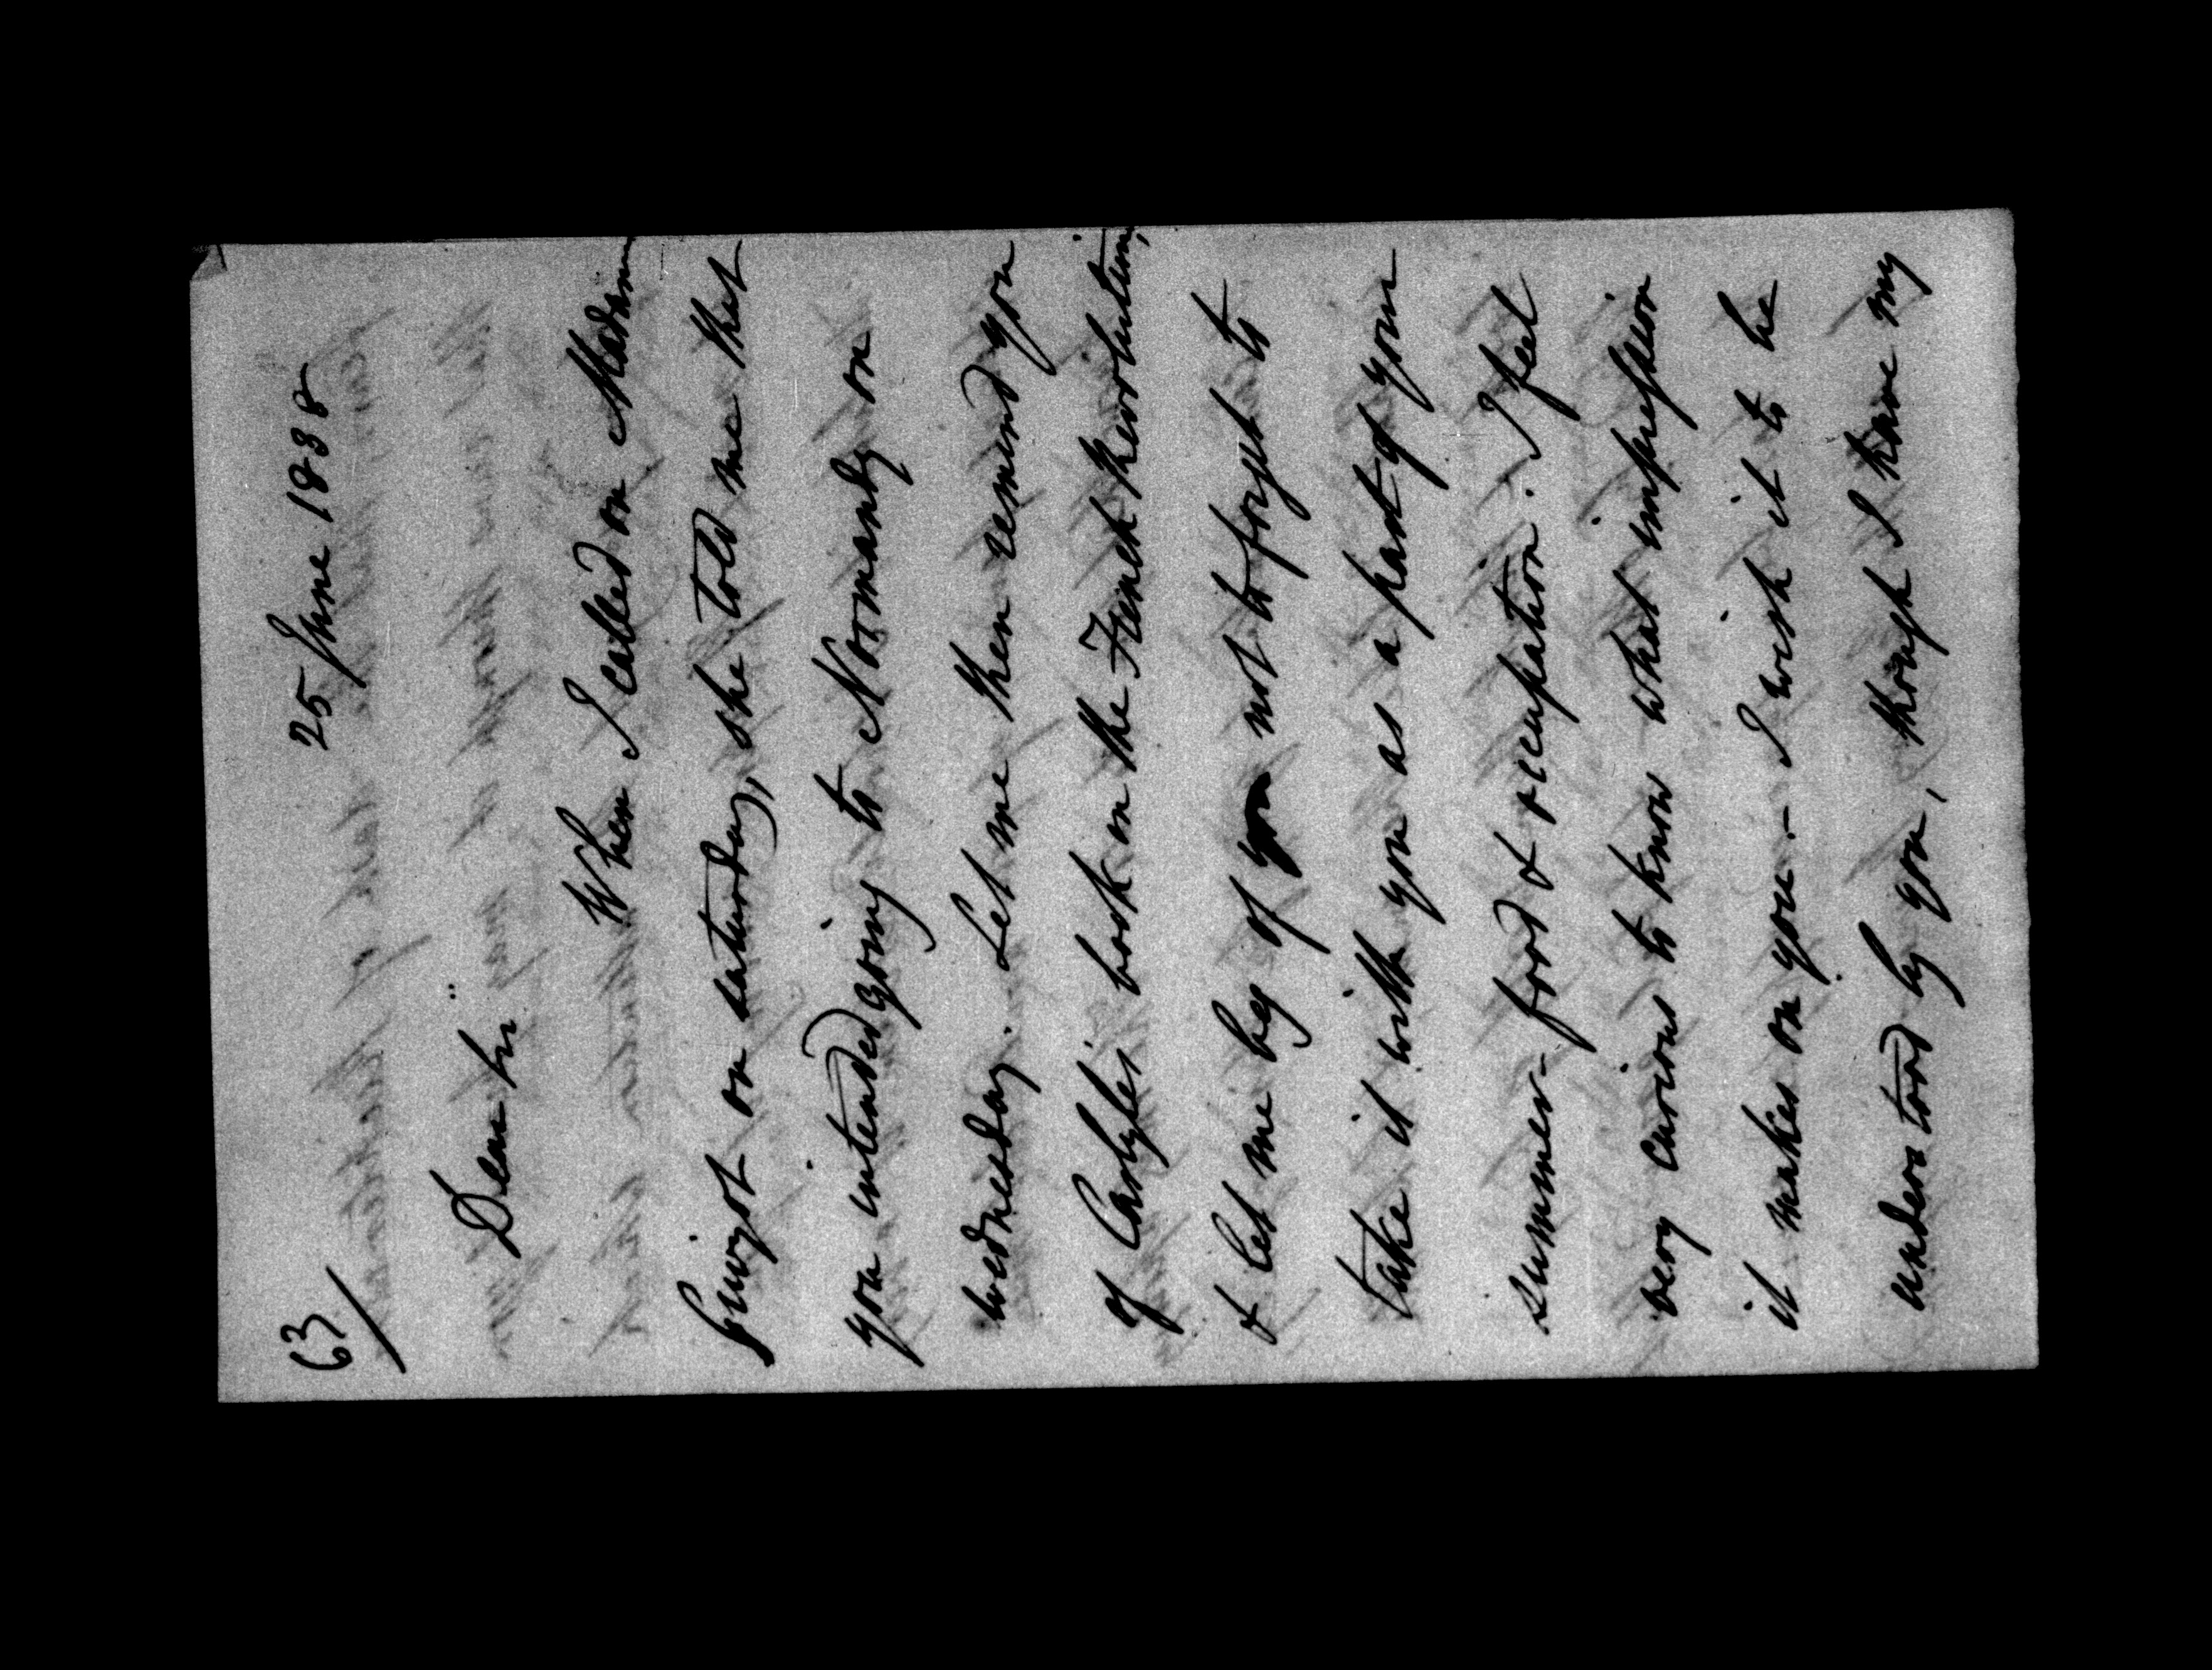 63/
25 June 1838
Dear Sir
When I called on Madam
Guizot on saturday, she told me that
you intended going to Normandy on
wednesday. Let me then remind you
of Carlyle's book on the French Revolution,
& let me beg of you not to forget to
take it with you as a part of your
summer-food & occupation. I feel
very curious to know what impression
it makes on you. - I wish it to be
understood by you, though I have my